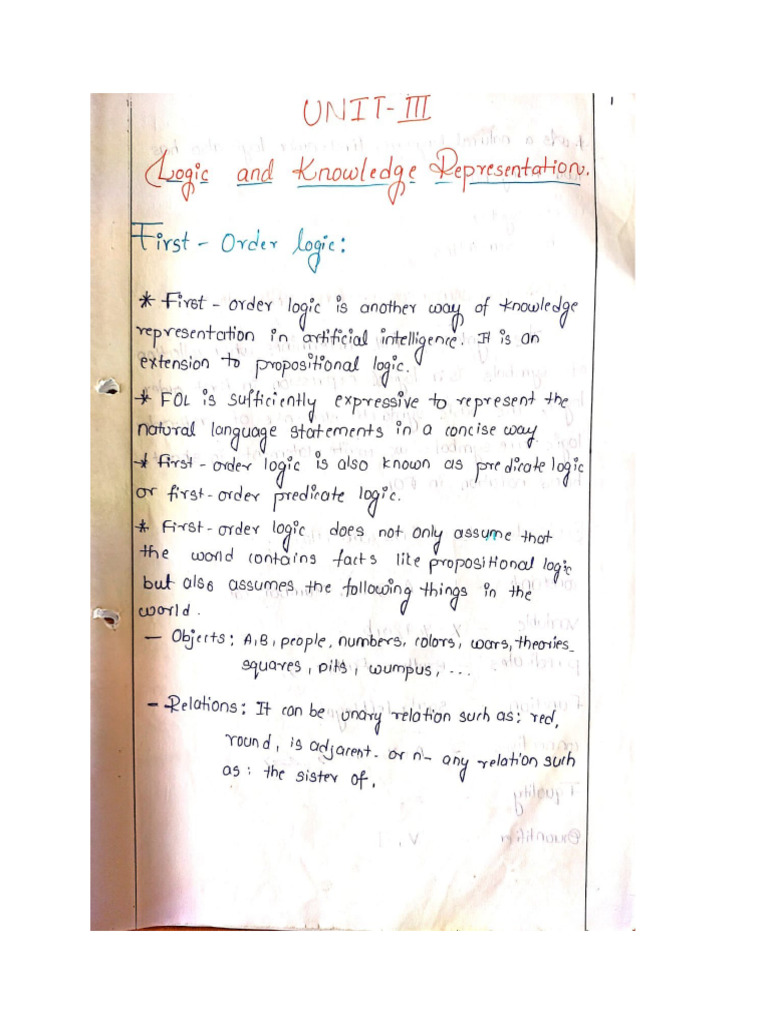 UNIT-III
1
Logic and Knowledge Representation.
First-Order logic:
* First-order logic is another way of knowledge
representation in artificial intelligence. It is an
extension to propositional logic.
* FOL is sufficiently expressive to represent the
natural language statements in a concise way
* First-order logic is also known as predicate logic
or first-order predicate logic.
* First-order logic does not only assume that
the world contains facts like propositional logic
but also assumes the following things in the
world.
- Objects: A, B, people, numbers, colors, wars, theories
squares, pits, wumpus, ...
- Relations: It can be unary relation such as: red,
round, is adjacent. or n-any relation such
as: the sister of,